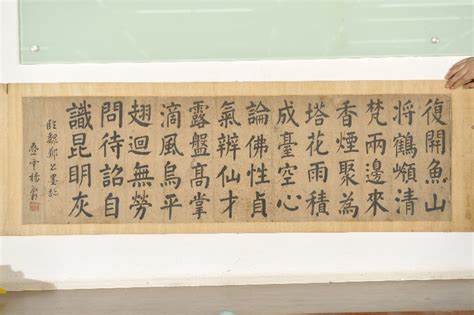 復開魚山
將鶴頌清
梵兩邊來
香煙聚為
塔花雨積
成臺空心
論佛性貞
氣辨仙才
露盤高掌
滴風烏平
翅迴無勞
問待詔自
識昆明灰